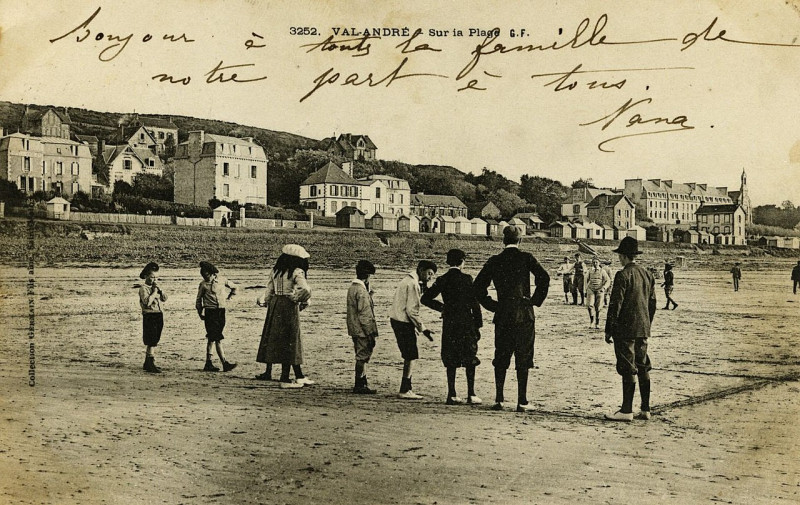 3252. VAL-ANDRÉ - Sur la Plage G.F.
Bonjour à toute la famille de
notre part à tous.
Nana.
Collection